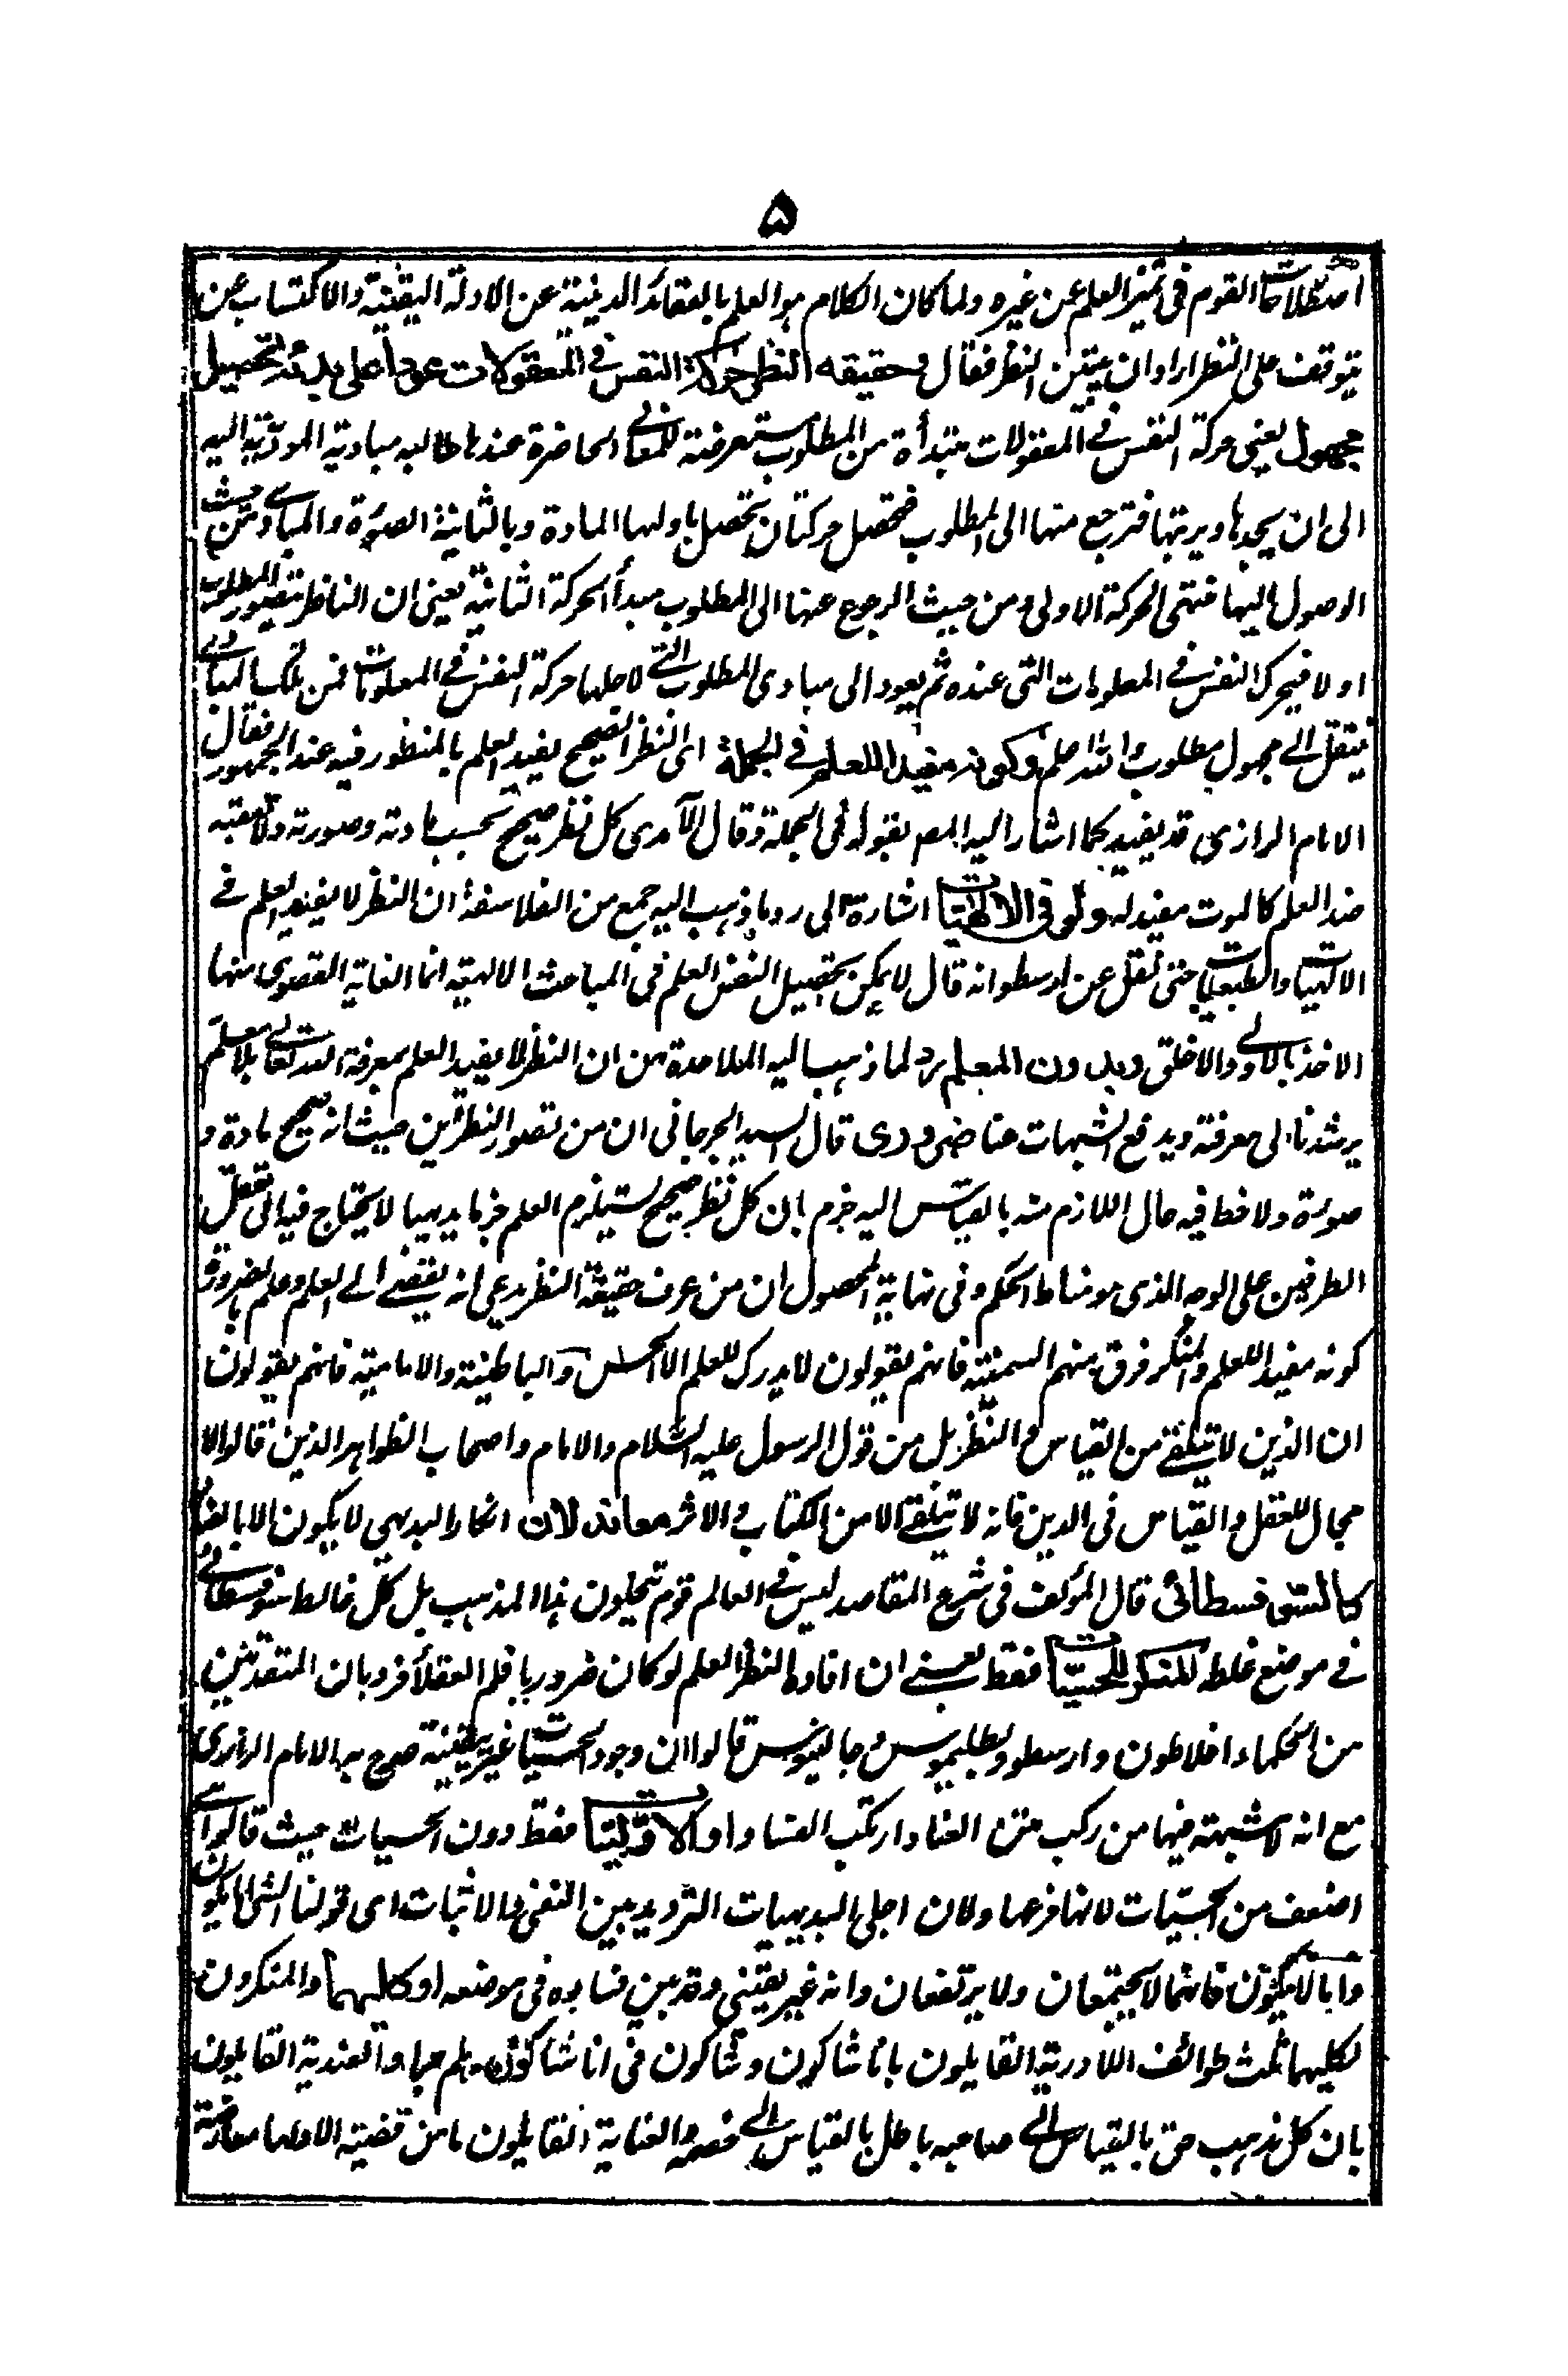 ۵
اصطلاحات القوم فی تمیز العلم عن غیره ولما کان الکلام هو العلم بالعقائد الدینیة عن الادلة الیقینیة والاکتساب عن
یتوقف علی النظر اراد ان یبین النظر فقال وحقیقه النظر حرکة النفس فی المعقولات عوداً علی بدء لتحصیل
مجهول یعنی حرکة النفس فی المعقولات مبتدأة من المطلوب مستعرضة للمعانی الحاضرة عندها طالبه مبادیة المودیة الیه
الی ان یجدها ویرتبها فترجع منها الی المطلوب فتحصل حرکتان تحصل باولها المادة وبالثانیة الصورة والمبادی من حیث
الوصول الیها منتهی الحرکة الاولی ومن حیث الرجوع عنها الی المطلوب مبدأ الحرکة الثانیة یعنی ان الناظر یتصور المطلوب
اولا فیحرک النفس فی المعلومات التی عنده ثم یعود الی مبادی المطلوب التی لاجلها حرکة النفس فی المعلومات فمن تلک المبادی
ینتقل الی مجهول مطلوب والله اعلم وکونه مفیدا للعلم فی الجملة ای النظر الصحیح یفید العلم بالمنظور فیه عند الجمهور فقال
الامام الرازی قد یفید کما اشار الیه المص بقوله فی الجملة وقال الآمدی کل نظر صحیح بحسب مادته وصورته ولا یعقبه
ضد العلم کالموت مفید له ولو فی الالهیات اشارة الی رد ما ذهب الیه جمع من الفلاسفة ان النظر لا یفید العلم فی
الالهیات والطبعیات حتی نقل عن ارسطو انه قال لا یمکن تحصیل النفس العلم فی المباحث الالهیة انما الغایة القصوی منها
الاخذ بالاولی والاخلق وبدون المعلم رد لما ذهب الیه الملاحدة من ان النظر لا یفید العلم بمعرفة الله تعالی بلا معلم
یرشدنا الی معرفته ویدفع الشبهات عنا ضروری قال السید الجرجانی ان من تصور النظر من حیث انه صحیح مادة و
صورة ولاحظ فیه حال اللازم منه بالقیاس الیه جزم بان کل نظر صحیح یستلزم العلم جزما بدیهیا لا یحتاج فیه الی تعقل
الطرفین علی الوجه الذی هو مناط الحکم وفی نهایة المحصول ان من عرف حقیقة النظر یدعی انه یفضی الی العلم وعلم بالضرورة
کونه مفیدا للعلم والمنکر فرق منهم السمنیة فانهم یقولون لا یدرک للعلم الا الحس والباطنیة والامامیة فانهم یقولون
ان الدین لا یتلقی من القیاس والنظر بل من قول الرسول علیه السلام والامام واصحاب الظواهر الذین قالوا لا
مجال للعقل والقیاس فی الدین فانه لا یتلقی الا من الکتاب والاثر معاند لان انکار البدیهی لا یکون الا بالعناد
کالسوفسطائی قال المؤلف فی شرح المقاصد لیس فی العالم قوم ینحلون هذا المذهب بل کل غالط سوفسطائی
فی موضع غلطه للمنکر للحسیات فقط یعنی ان افادة النظر العلم لو کان ضروریا فلم العقلاء فردبان المتقدمین
من الحکماء افلاطون وارسطو وبطلیموس وجالینوس قالوا ان وجود الحسیات غیر یقینیة صرح به الامام الرازی
مع انه لا شبهته فیها من رکب متن العناد ارتکب الفساد او الاولیات فقط دون الحسیات حیث قالوا هی
اضعف من الحسیات لانها فرعها ولان اجلی البدیهیات التردید بین النفی والاثبات ای قولنا الشی اما یکون
واما لا یکون فانهما لا یجتمعان ولا یرتفعان وانه غیر یقینی وقد بین فساده فی موضعه او کلیهما والمنکرون
لکلیهما ثلث طوائف اللاادریة القایلون بانا شاکون وشاکون فی انا شاکون وهلم جرا والعندیة القایلون
بان کل مذهب حق بالقیاس الی صاحبه باطل بالقیاس الی خصمه والعنادیة القایلون ما من قضیة الا ولها معارضة